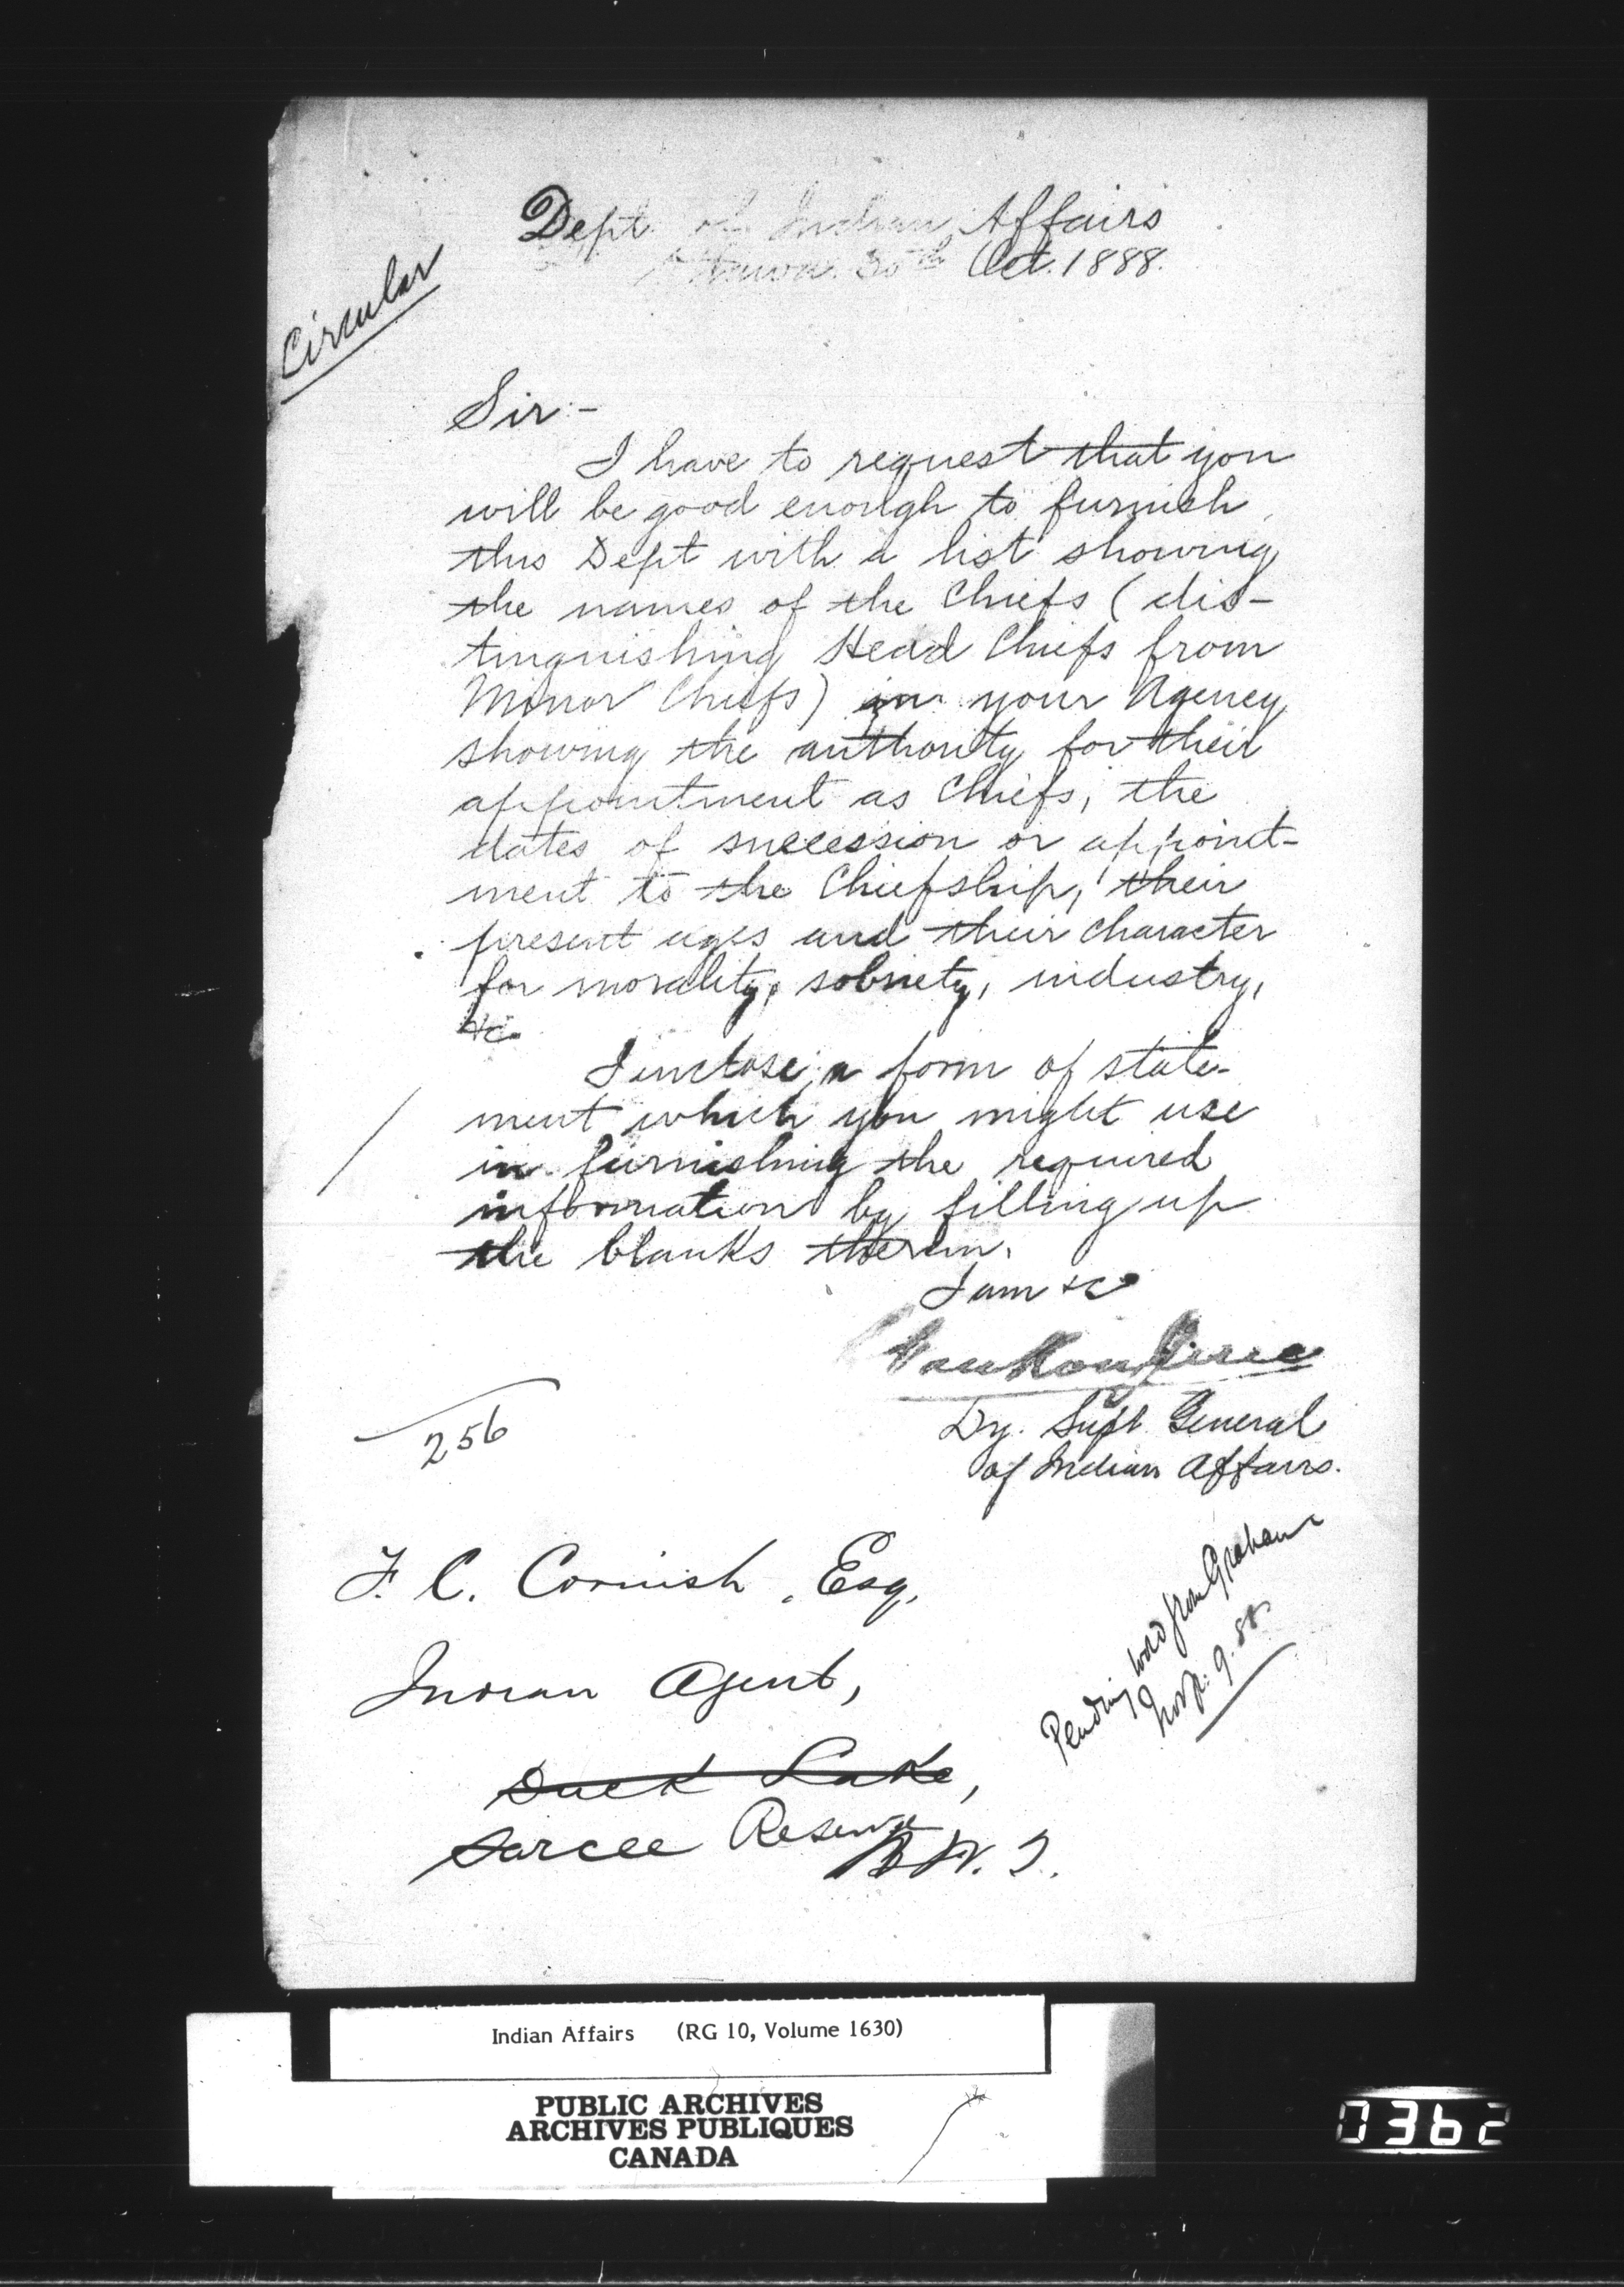 Dept. of Indian Affairs
Ottawa 30th Oct. 1888.
Circular
Sir:-
I have to request that you
will be good enough to furnish
this Dept with a list showing
the names of the Chiefs (dis-
tinguishing Head Chiefs from
Minor Chiefs) in your Agency
showing the authority for their
appointment as Chiefs, the
dates of succession or appoint-
ment to the Chiefship, their
present ages and their character
for morality, sobriety, industry,
&c.
I inclose a form of state-
ment which you might use
in furnishing the required
information by filling up
the blanks therein.
I am &c
L Vankoughnet
Dy. Supt General
of Indian Affairs.
256
F. C. Cornish, Esq,
Indian Agent,
Duck Lake,
Sarcee Reserve
N.W.T.
Pending word from Graham
9.88
Indian Affairs (RG 10, Volume 1630)
PUBLIC ARCHIVES
ARCHIVES PUBLIQUES
CANADA
0362